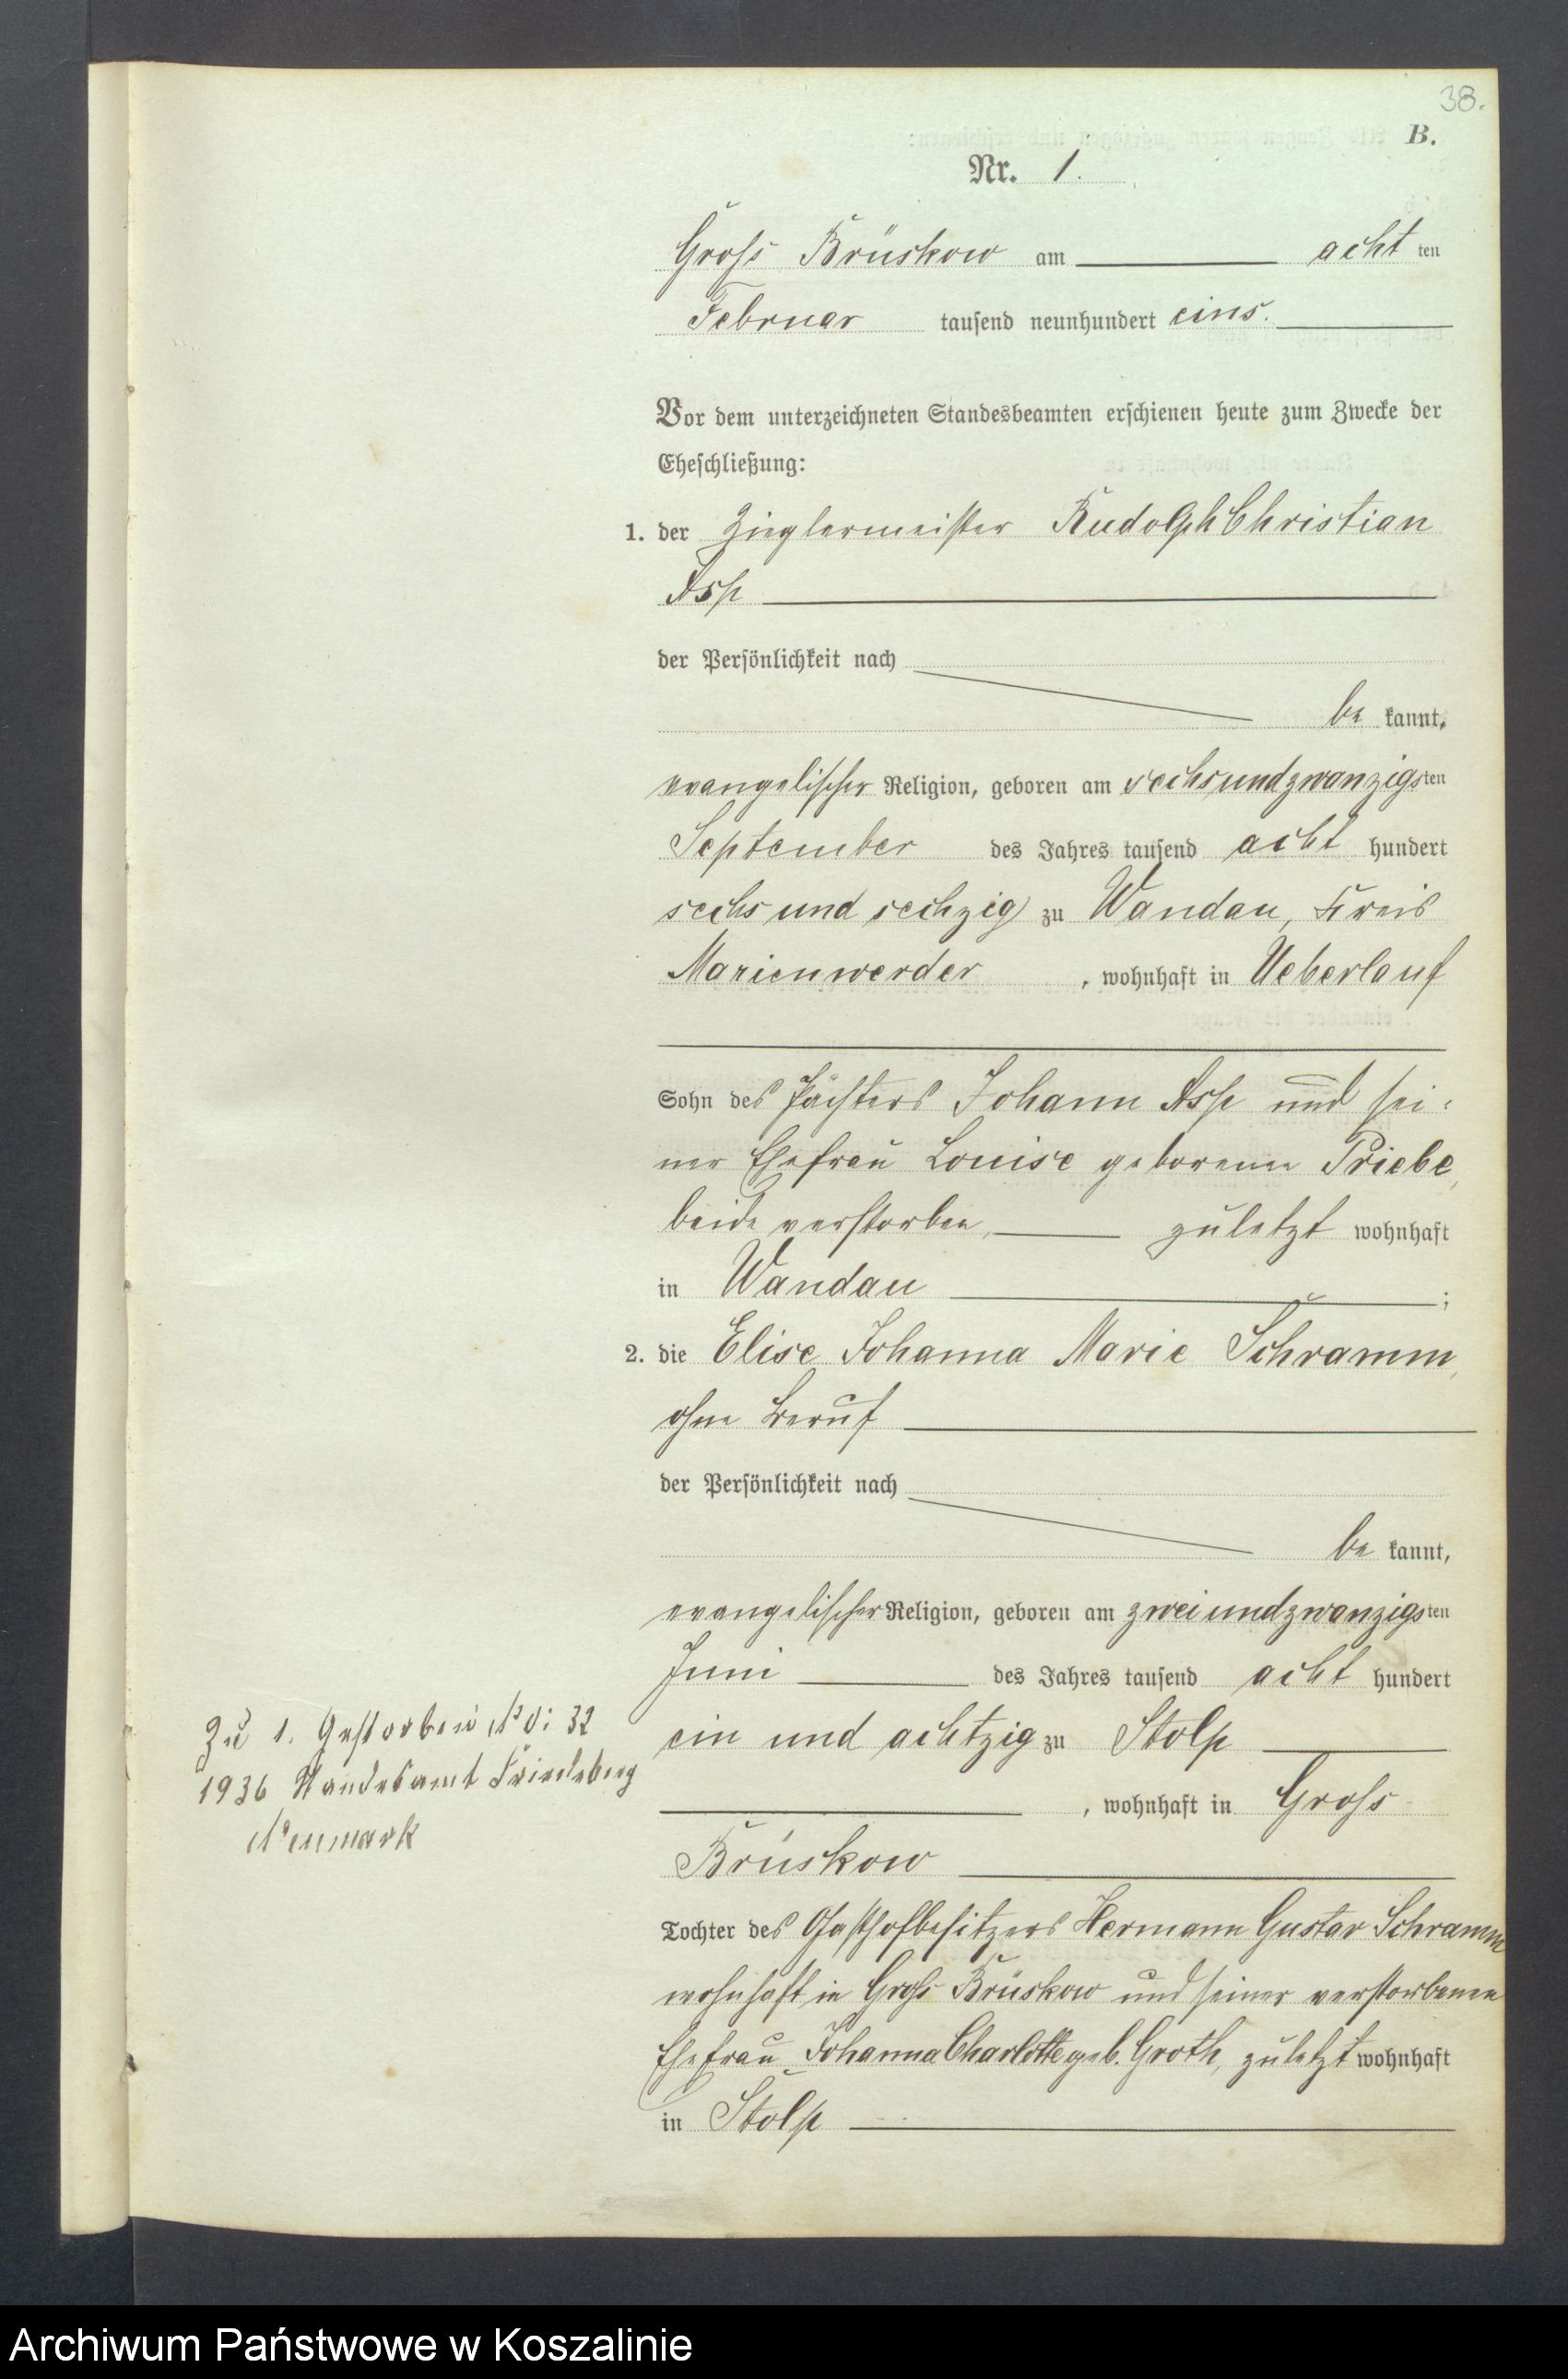 38.
B.
Nr. 1.
Gross Brüskow am acht ten
Februar tausend neunhundert eins.
Vor dem unterzeichneten Standesbeamten erschienen heute zum Zwecke der
Eheschließung:
1. der Zieglermeister Rudolph Christian
Asp
der Persönlichkeit nach
be kannt,
evangelischer Religion, geboren am sechsundzwanzigsten
September des Jahres tausend acht hundert
sechs und sechzig zu Wandau, Kreis
Marienwerder, wohnhaft in Ueberlauf
Sohn des Pächters Johann Asp und sei-
ner Ehefrau Louise geborenen Priebe,
beide verstorben, zuletzt wohnhaft
in Wandau ;
2. die Elise Johanna Marie Schramm,
ohne Beruf
der Persönlichkeit nach
be kannt,
evangelischer Religion, geboren am zweiundzwanzigsten
Juni des Jahres tausend acht hundert
ein und achtzig zu Stolp
, wohnhaft in Gross
Brüskow
Tochter des Gasthofbesitzers Hermann Gustav Schramm
wohnhaft in Gross Brüskow und seiner verstorbenen
Ehefrau Johanna Charlotte geb. Groth, zuletzt wohnhaft
in Stolp
Zu 1. Gestorben No: 32
1936 Standesamt Friedeberg
Neumark
Archiwum Państwowe w Koszalinie